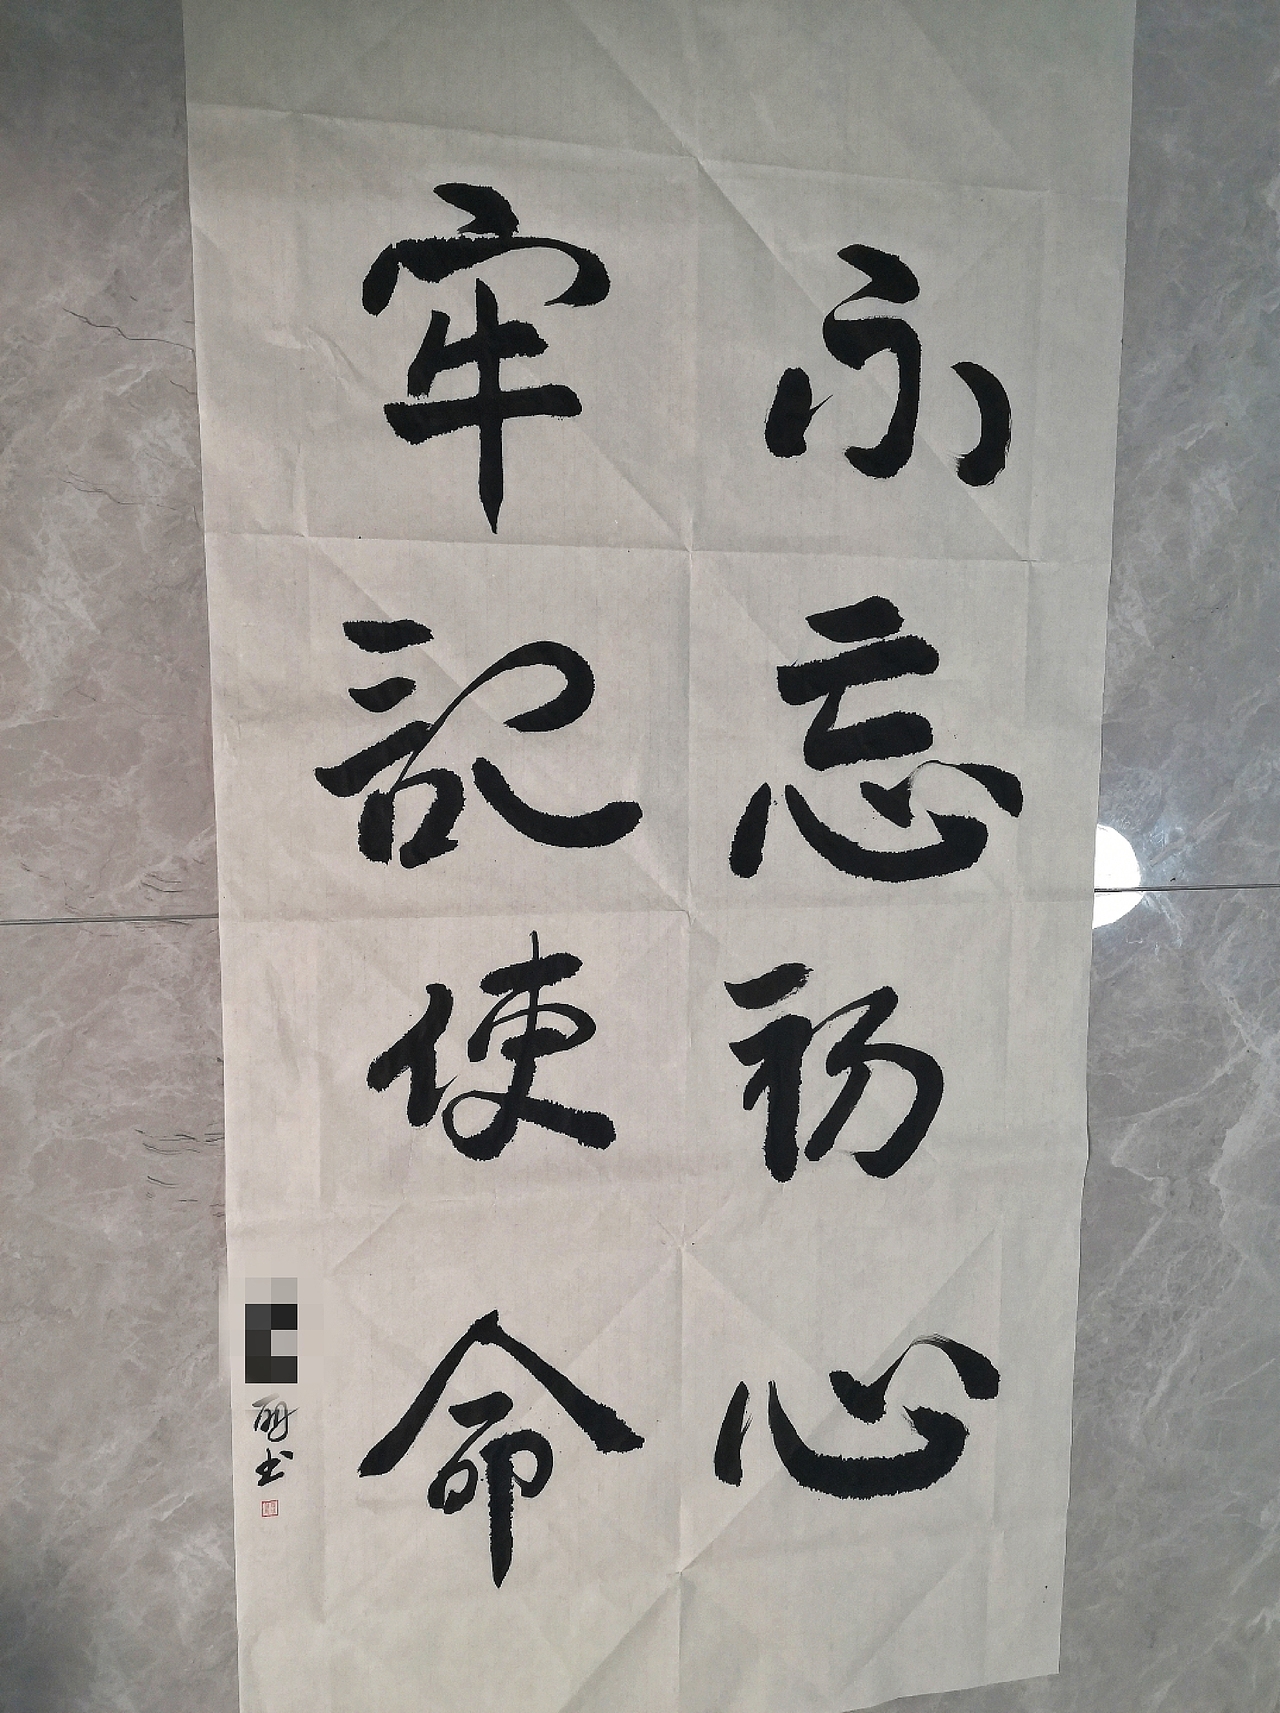 不忘初心
牢記使命
丽书